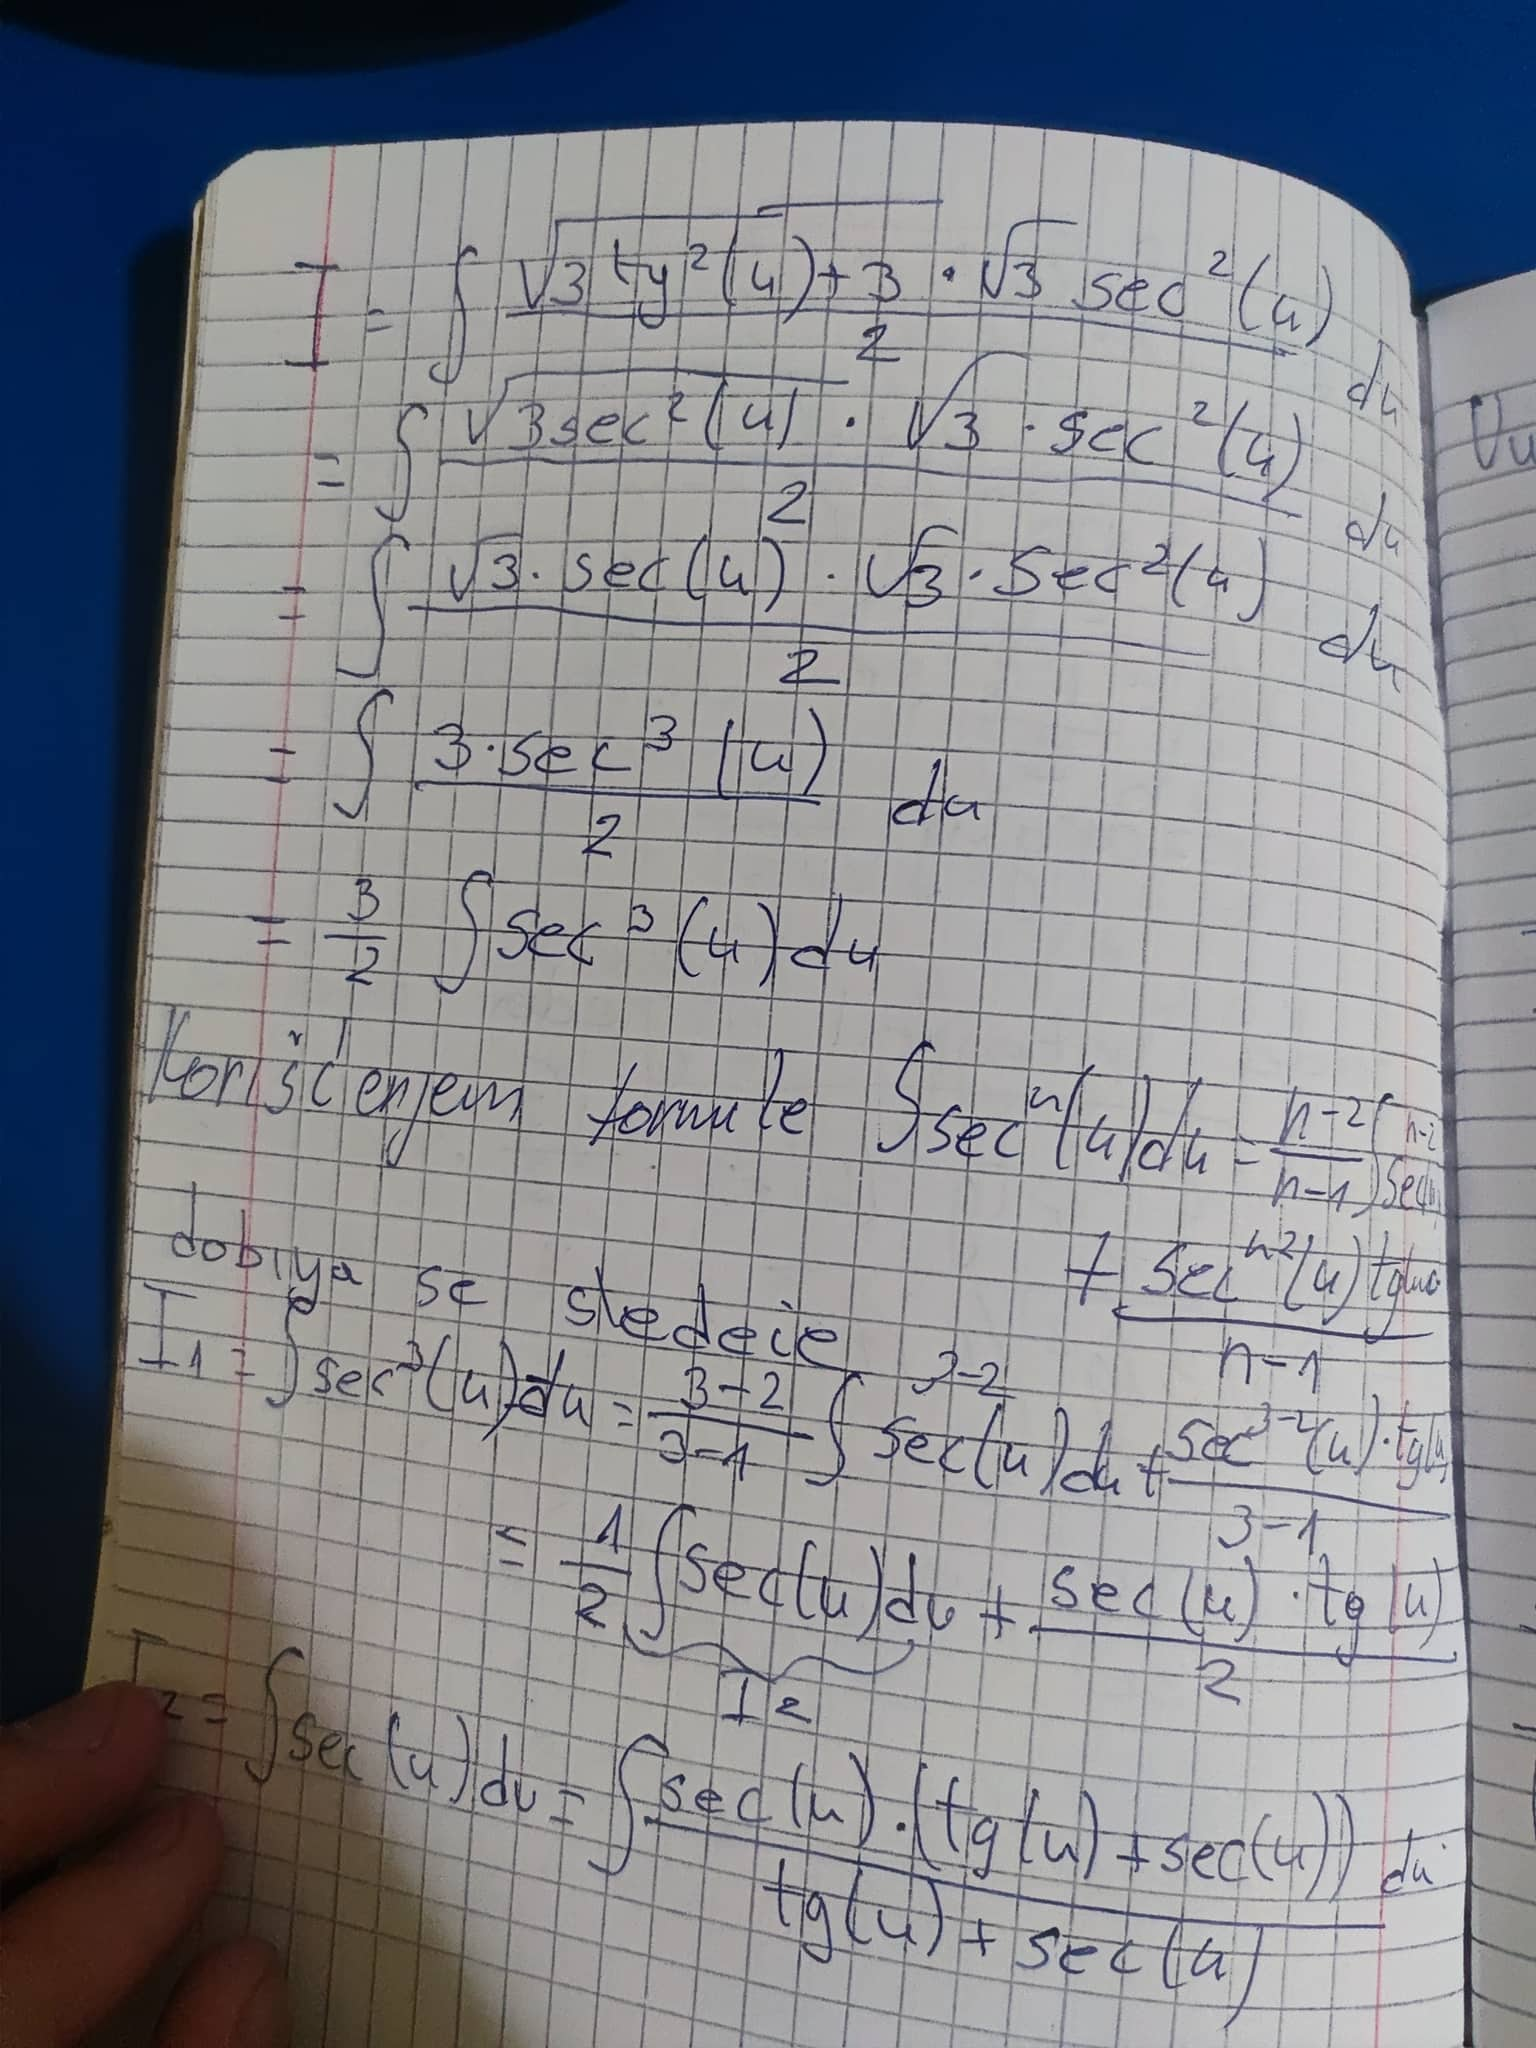 I = ∫ √(3 tg²(u) + 3) · √3 sec²(u) / 2 du
= ∫ √(3sec²(u)) · √3 · sec²(u) / 2 du
= ∫ √3 · sec(u) · √3 · sec²(u) / 2 du
= ∫ 3·sec³(u) / 2 du
= 3/2 ∫ sec³(u) du
Korišćenjem formule ∫ secⁿ(u) du = n-2/n-1 ∫ secⁿ⁻²(u)
+ secⁿ⁻²(u) tg(u) / n-1
dobija se sledeće
I₁ = ∫ sec³(u) du = 3-2/3-1 ∫ sec³⁻²(u) du + sec³⁻²(u)·tg(u) / 3-1
= 1/2 ∫ sec(u) du + sec(u)·tg(u) / 2
I₂
I₂ = ∫ sec(u) du = ∫ sec(u)·(tg(u)+sec(u)) / tg(u)+sec(u) du